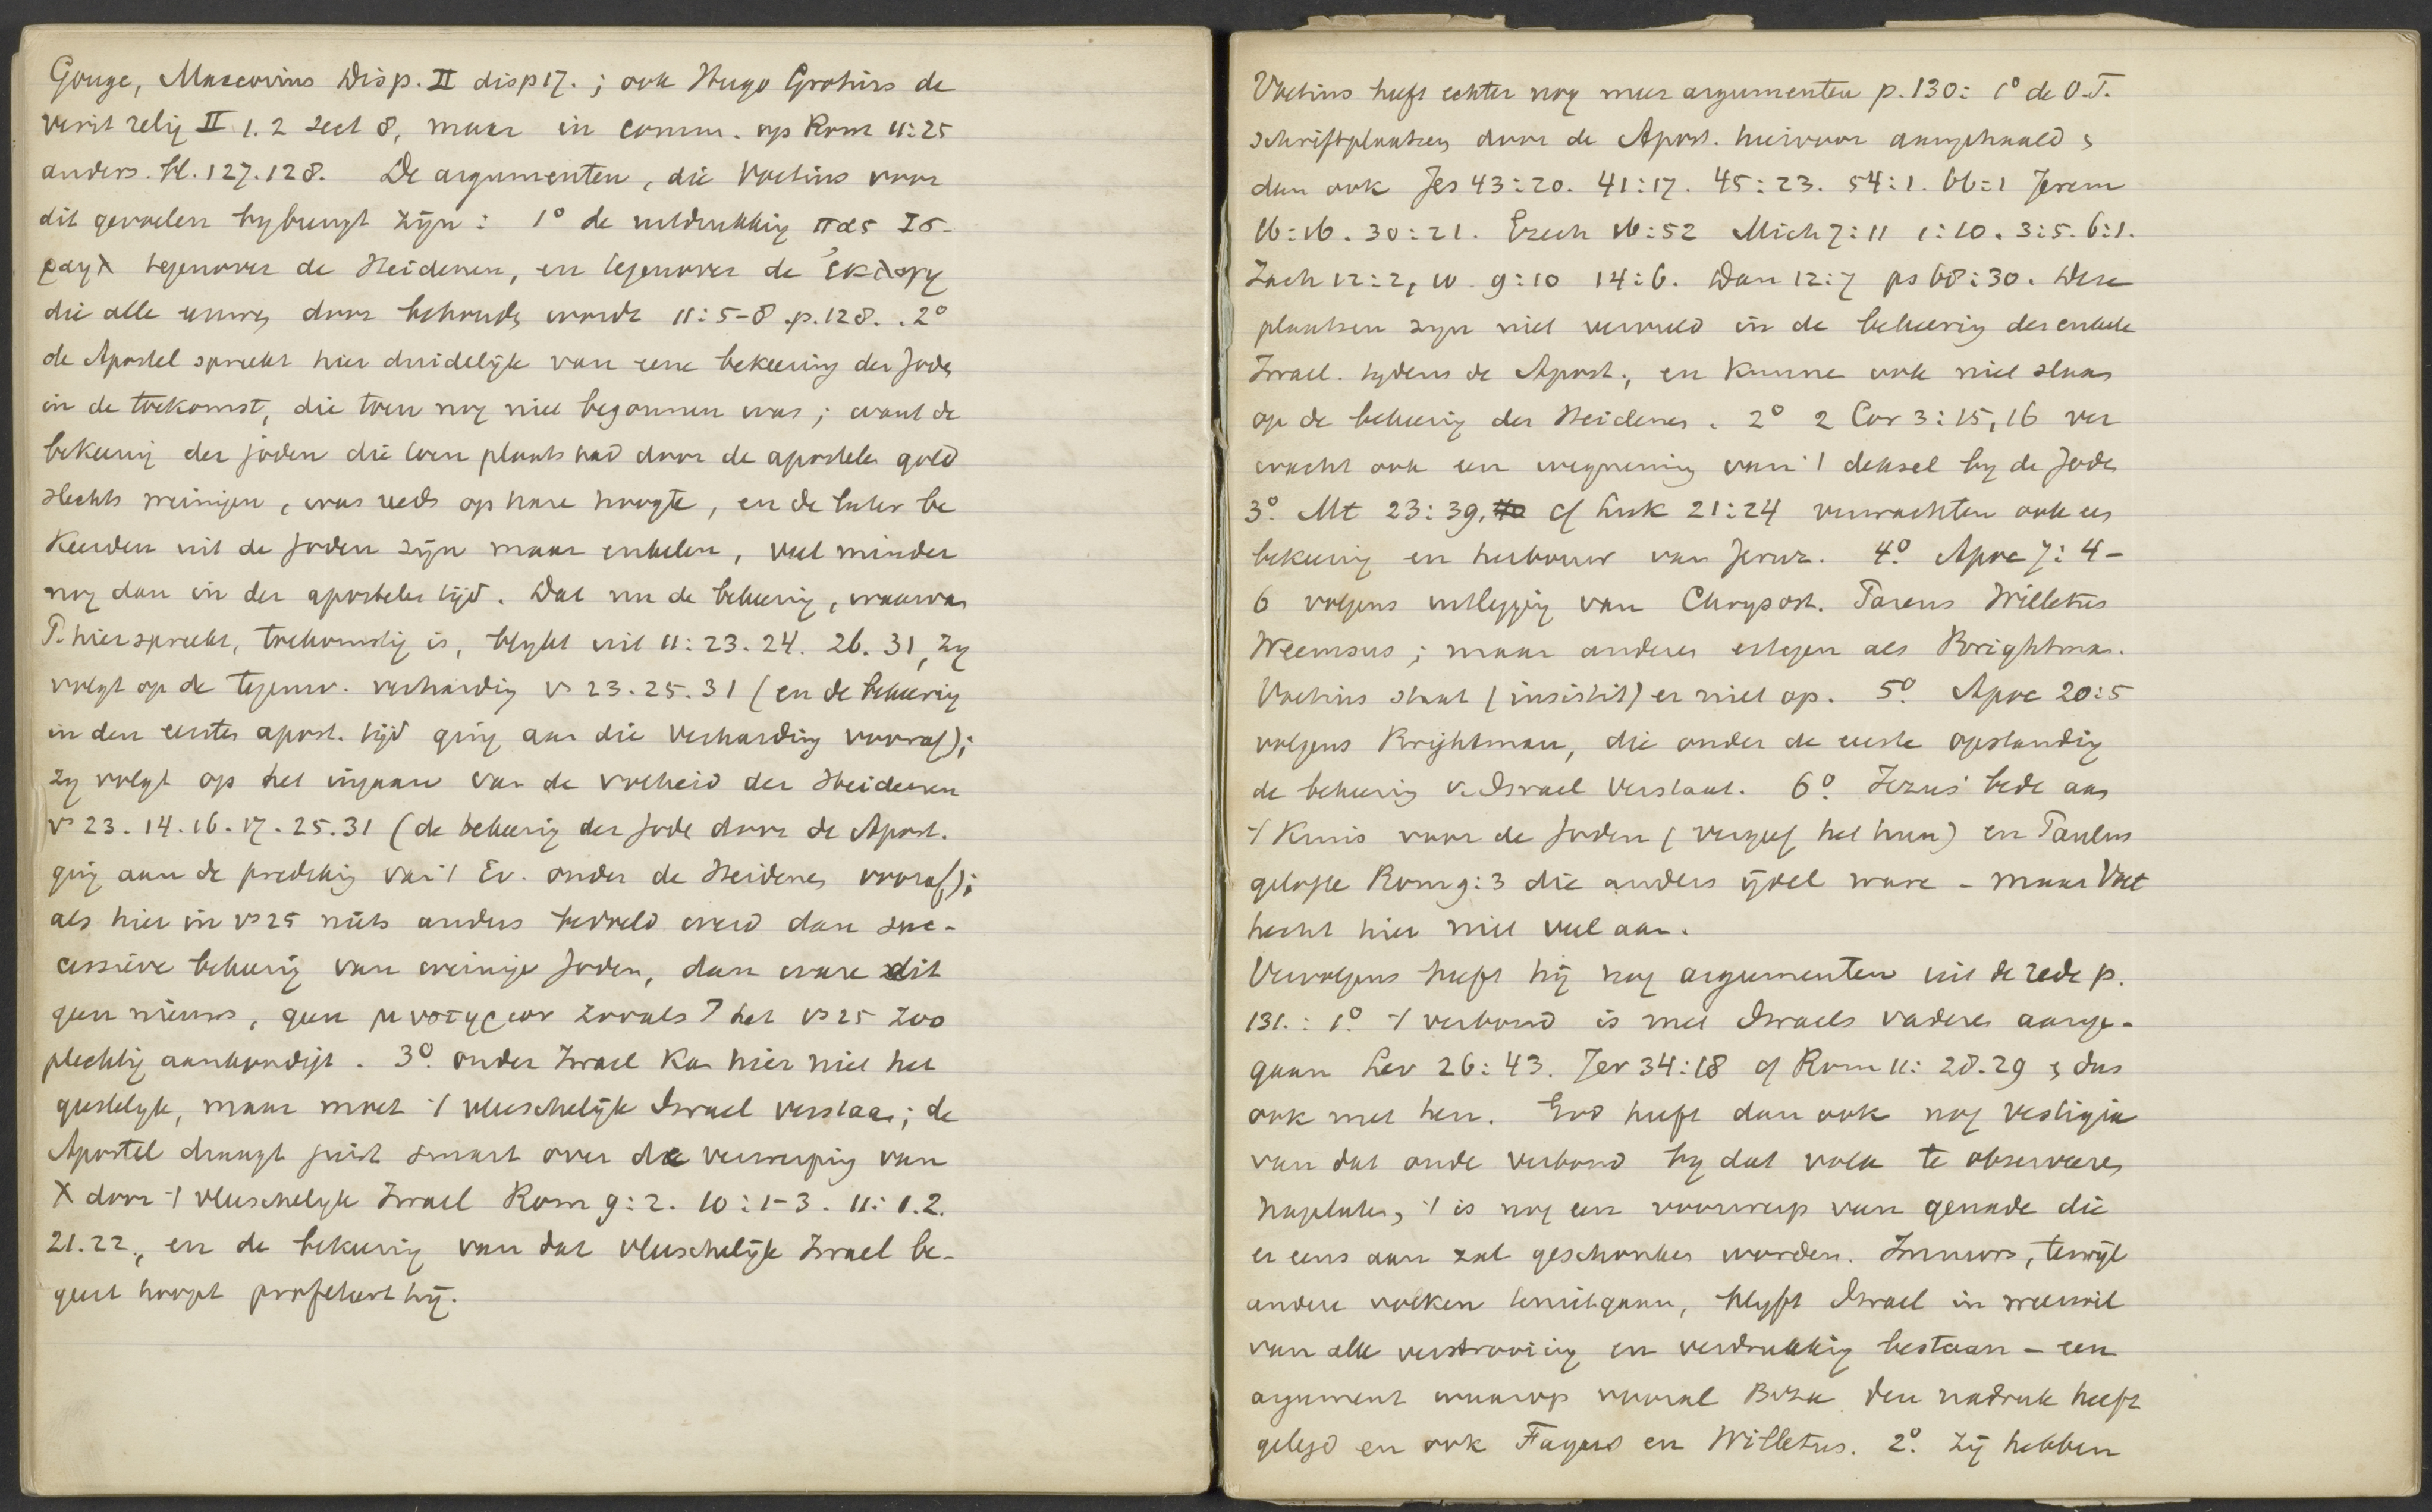 Gouge, Maccovius Disp. II disp 17. ; ook Hugo Grotius de
verit relig II l. 2 sect 8, maar in comm. op Rom 11:25
anders. bl. 127. 128. De argumenten, die Voetius voor
dit gevoelen bybrengt zijn : 1° de uitdrukking πας Ισ-
ραηλ tegenover de Heidenen, en tegenover de ἐκλογη
die alle eeuwen door behouden wordt 11:5-8 . p. 128. . 2°
de Apostel spreekt hier duidelijk van eene bekeering der Joden
in de toekomst, die toen nog niet begonnen was ; want de
bekeering der joden die toen plaats had door de apostelen gold
slechts weinigen, was reeds op hare hoogte, en de later be
keerden uit de Joden zijn maar enkelen, veel minder
nog dan in der apostelen tijd. Dat nu de bekeering, waarvan
P. hier spreekt, toekomstig is, blykt uit 11: 23. 24. 26. 31, zy
volgt op de tegenw. verharding vs 23. 25. 31 (en de bekeering
in den eersten apost. tijd ging aan die verharding vooraf);
zy volgt op het ingaan van de volheid der Heidenen
vs 23. 14. 16. 17. 25. 31 (de bekeering der Jode door de Apost.
ging aan de prediking van 't Ev. onder de Heidenen vooraf);
als hier in vs 25 niets anders bedoeld werd dan suc-
cessieve bekeering van weinige Joden, dan ware dit
geen nieuws, geen μυστηριον zooals P het vs 25 zoo
plechtig aankondigt . 3° onder Israel kan hier niet het
geestelyk, maar moet 't vleeschelijk Israel verstaan; de
Apostel draagt juist smart over de verwerping van
X door 't vleeschelyk Israel Rom 9:2. 10:1-3. 11: 1.2.
21.22., en de bekeering van dat vleeschelijk Israel be-
geert hoopt profeteert hij.
Voetius heeft echter nog meer argumenten p. 130: 1° de O.T.
schriftplaatsen door de Apost. hiervoor aangehaald ;
dan ook Jes 43:20. 41:17. 45:23. 54:1. 66:1 Jerem
16:16. 30:21. Ezech 16:52 Mich 7:11 1:10. 3:5. 6:1.
Zach 12:2, 10 9:10 14:6. Dan 12:7 ps 68:30. Deze
plaatsen zyn niet vervuld in de bekeering der enkele
Israel. tydens de Apost., en kunne ook niet slaan
op de bekeering der Heidenen . 2° 2 Cor 3:15,16 ver
wacht ook een wegneming van 't deksel by de Joden
3° Mt 23:39, cf Luk 21:24 verwachten ook een
bekeering en herbouw van Jeruz. 4° Apoc 7:4-
6 volgens uitlegging van Chrysost. Pareus Willetus
Weemsus ; maar anderen ertegen als Brightman.
Voetius staat (insistit) er niet op. 5° Apoc 20:5
volgens Brightman, die onder de eerste opstanding
de bekeering v. Israel verstaat. 6° Jezus' bede aan
't Kruis voor de Joden (vergeef het hun) en Paulus
gelofte Rom 9:3 die anders ijdel ware - maar Voet
hecht hier niet veel aan.
Vervolgens heeft hij nog argumenten uit de rede p.
131. : 1° 't verbond is met Israels vaderen aange-
gaan Lev 26:43. Jer 34:18 cf Rom 11: 28.29 ; dus
ook met hen. God heeft dan ook nog vestigia
van dat oude verbond by dat volk te observeeren
nagelaten, 't is nog een voorwerp van genade die
er eens aan zal geschonken worden. Immers, terwijl
andere volken teniet gaan, blyft Israel in weerwil
van alle verstrooiing en verdrukking bestaan - een
argument waarop vooral Beza den nadruk heeft
gelegd en ook Fagius en Willetus. 2° Zij hebben